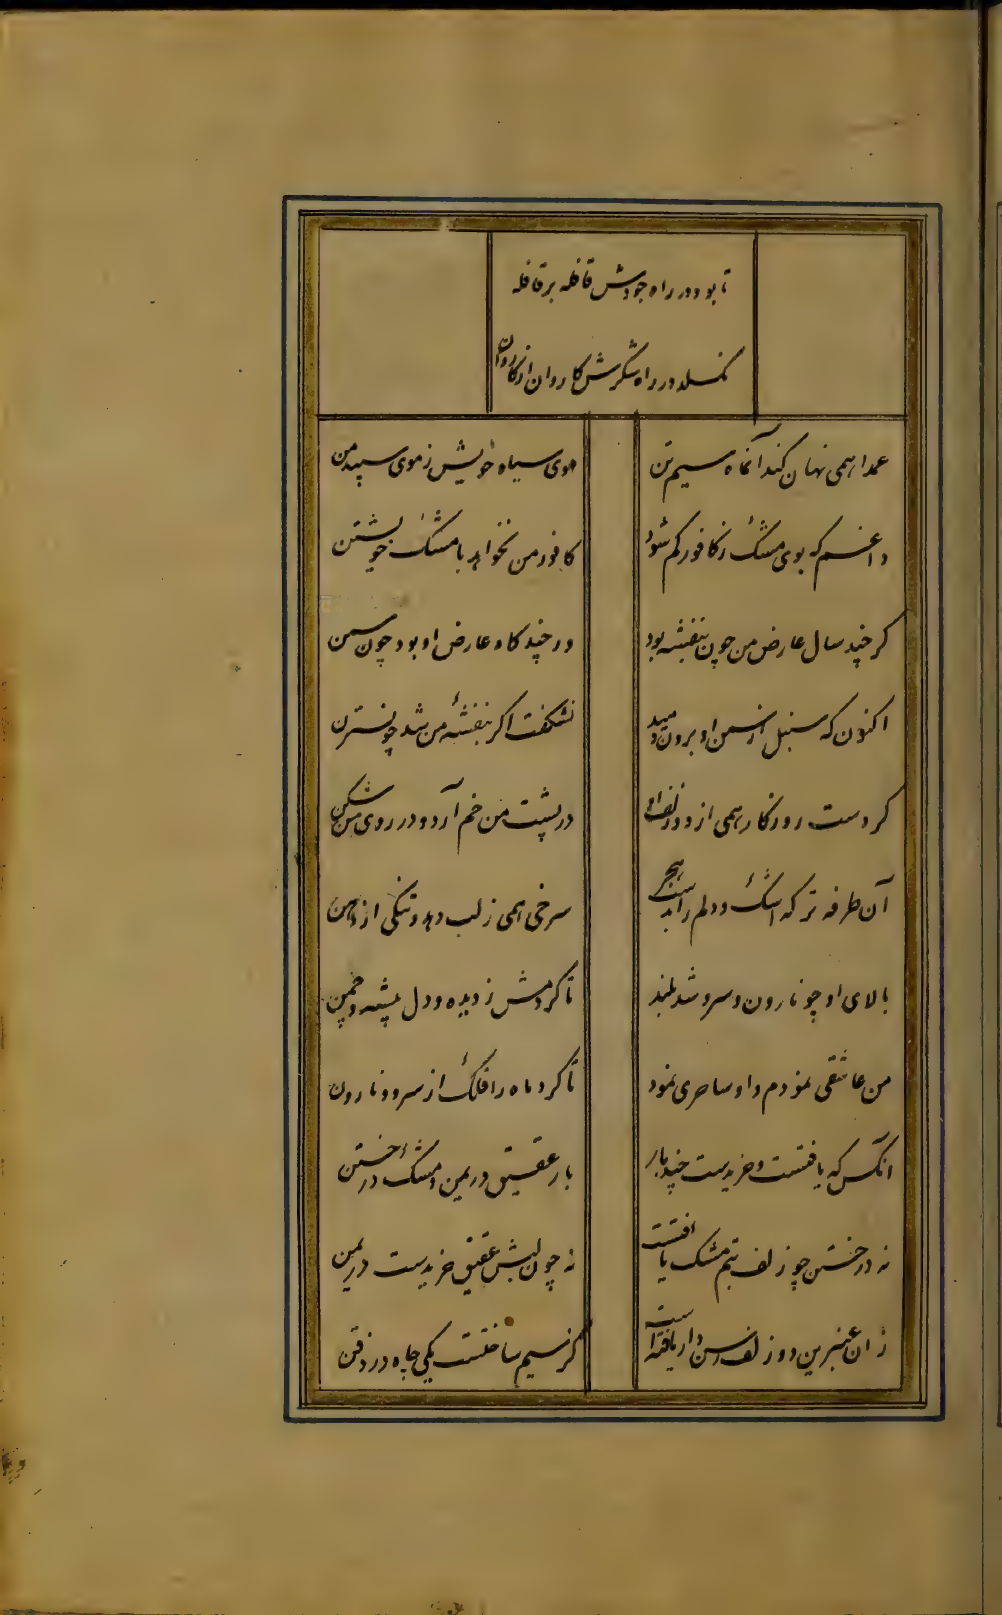 تا بود در راه جودش قافله بر قافله
نگسلد در راه شکرش کاروان از کاروان
عمدا همی نهان کند آنماه سیم تن
موی سیاه خویش ز موی سپید من
دانم که بوی مشک ز کافور کم شود
کافور من نخواهد با مشک خویشتن
گر چند سال عارض من چون بنفشه بود
ور چند گاه عارض او بود چون سمن
اکنون که سنبل از سمن او برون دمید
نشکفت اگر بنفشهٔ من شد چو نسترن
کردست روزگار همی از دو زلف او
در پشت من خم آرد و در روی من شکن
آن طرفه تر که اشک و دلم را بدست هجر
سرخی همی ز لب دهد و تنگی از دهن
بالای او چو نارون و سرو شد بلند
تا کردمش ز دیده و دل چشمه و چمن
من عاشقی نمودم و او ساحری نمود
تا کرد ماه را فلک از سرو و نارون
آنکس که یافتست و خریدست چند بار
بار عقیق در یمن و مشک در ختن
نه در ختن چو زلف بتم مشک یافتست
نه چون لبش عقیق خریدست در یمن
زان عنبرین دو زلف رسن دار یافته است
کز سیم ساختست یکی چاه در ذقن